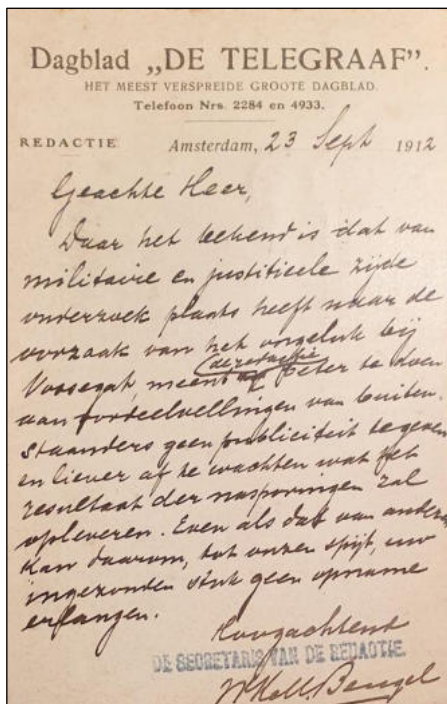 Dagblad „DE TELEGRAAF".
HET MEEST VERSPREIDE GROOTE DAGBLAD.
Telefoon Nrs. 2284 en 4933.
REDACTIE
Amsterdam, 23 Sept 1912
Geachte Heer,
Daar het bekend is dat van
militaire en justitieele zijde
onderzoek plaats heeft naar de
oorzaak van het ongeluk bij
de redactie
Vossegat, meent beter te doen
aan oordeelvellingen van buiten-
staanders geen publiciteit te geven
en liever af te wachten wat het
resultaat der nasporingen zal
opleveren. Even als dat van anderen
kan daarom, tot onzen spijt, uw
ingezonden stuk geen opname
erlangen.
Hoogachtend
DE SECRETARIS VAN DE REDACTIE.